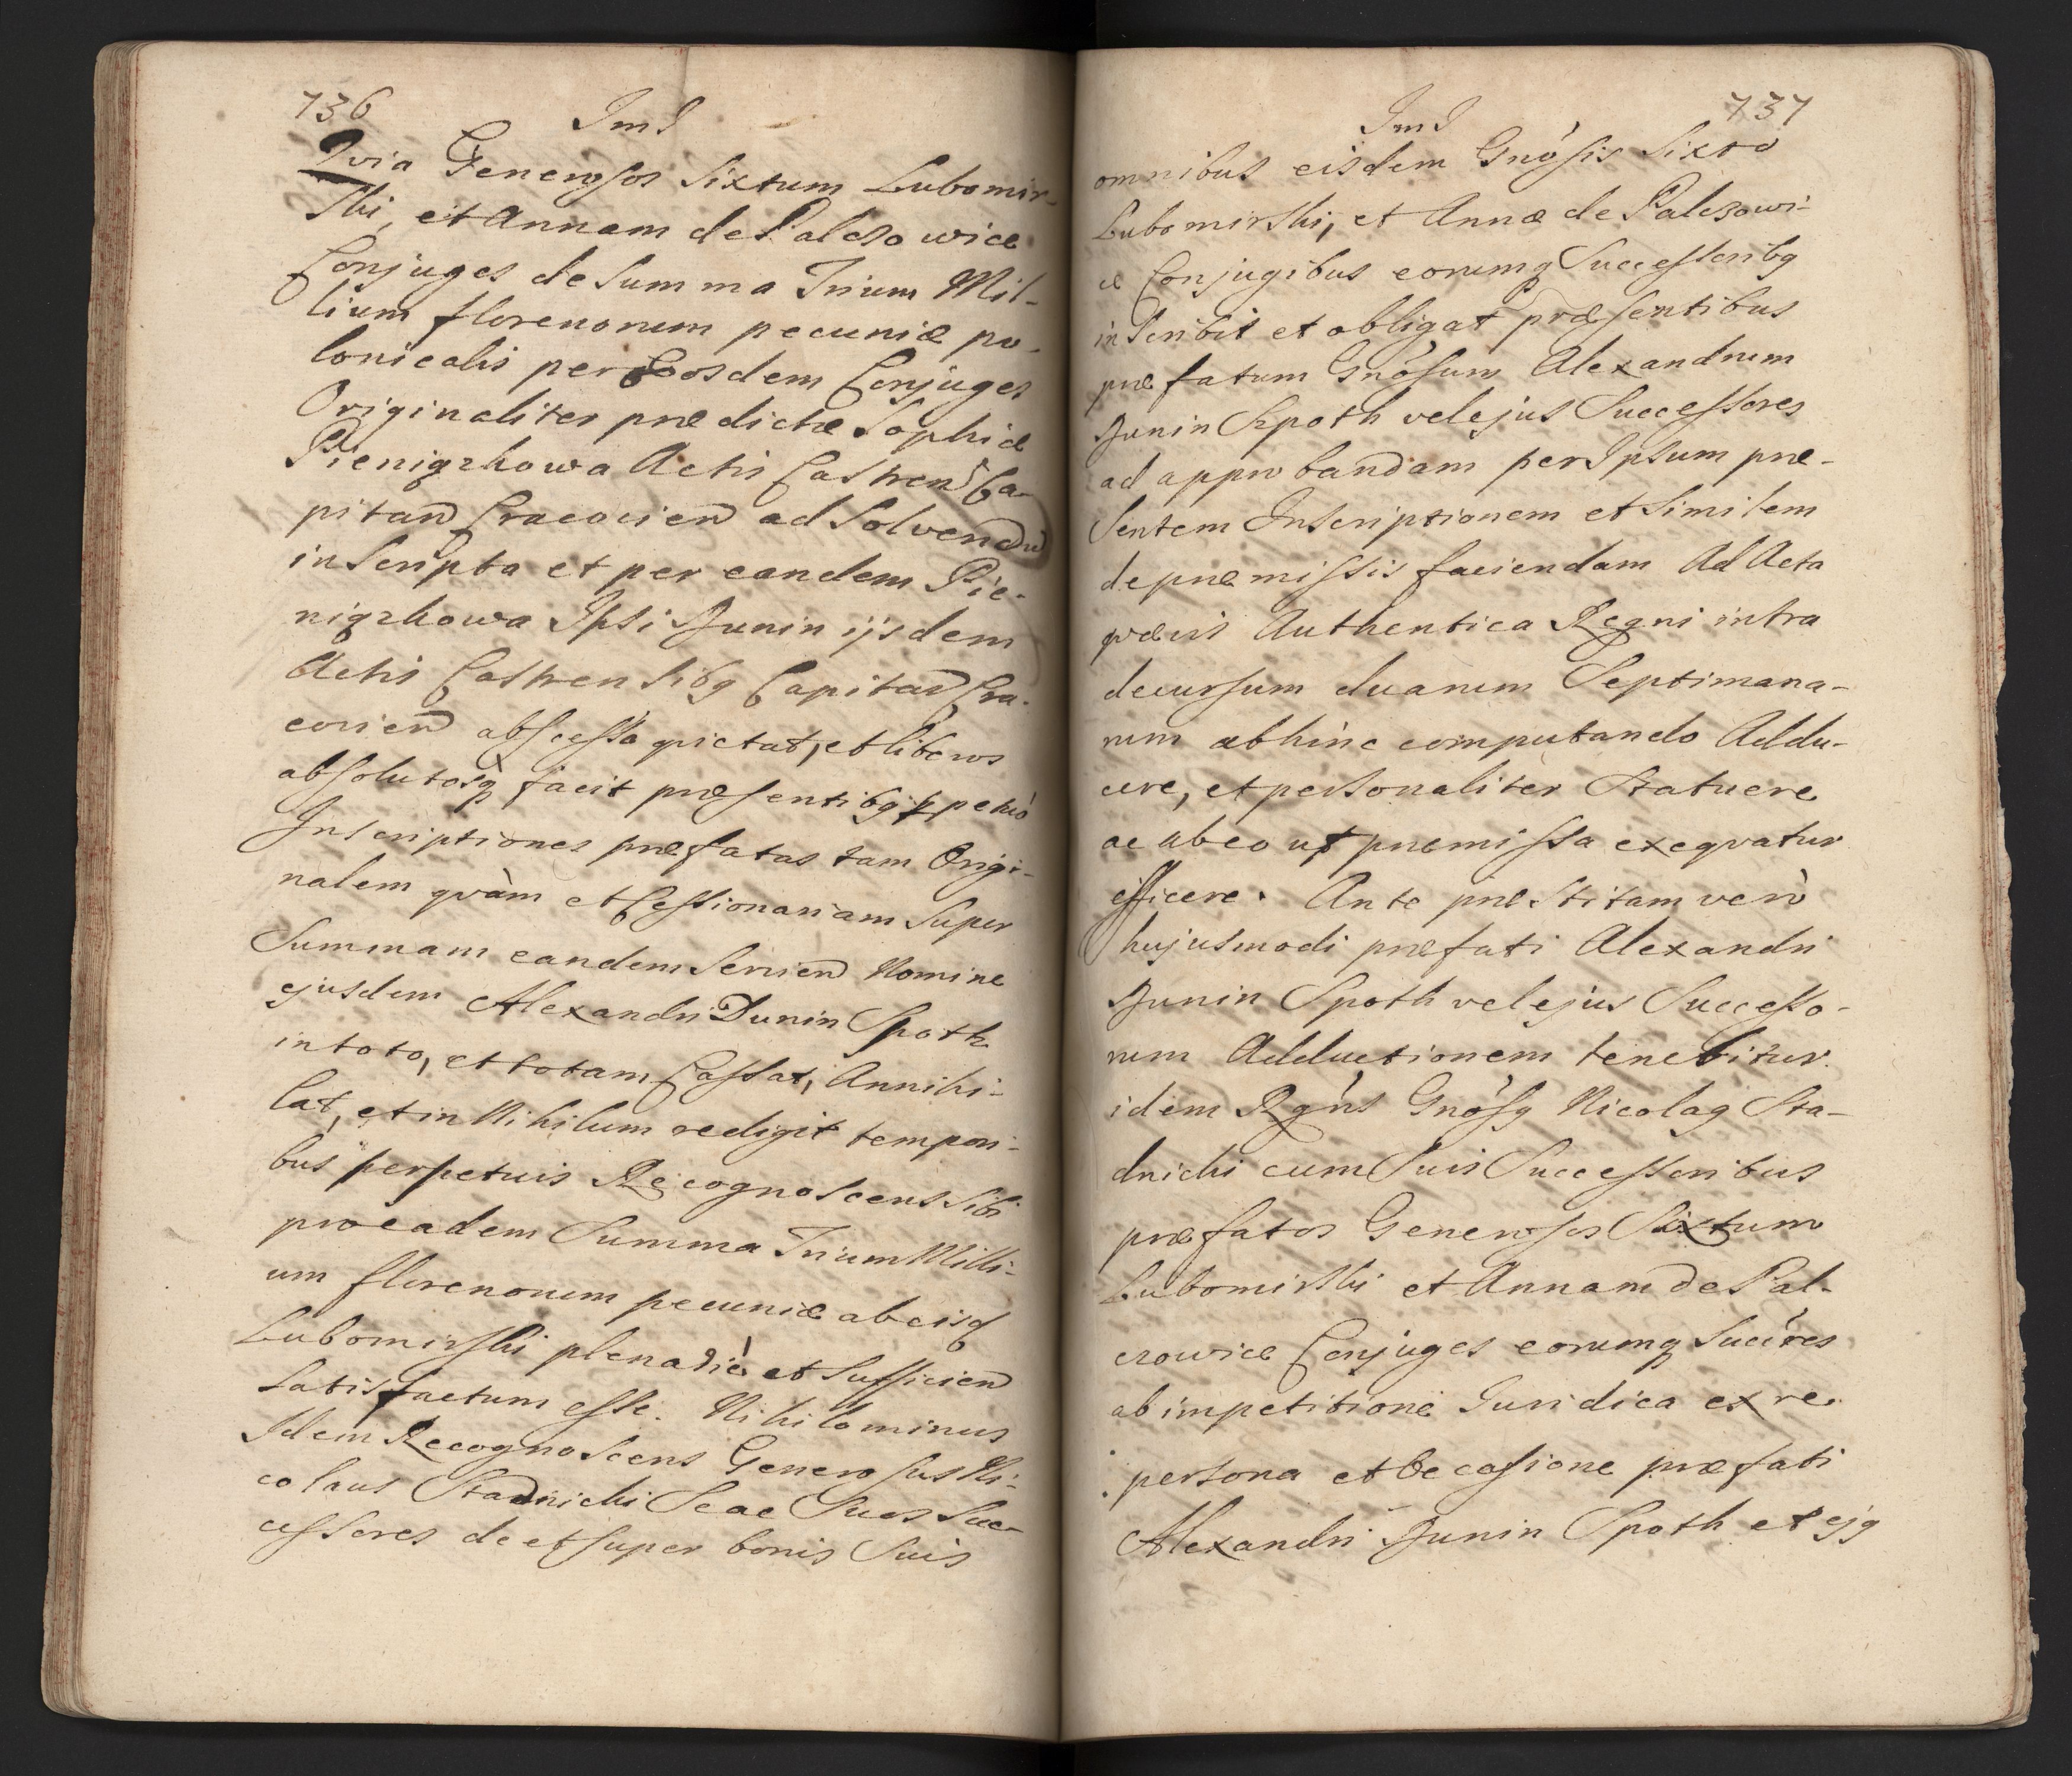 736
ImI
Qvia Generosos Sixtum Lubomir-
ski, et Annam de Palczowice
Conjuges de Summa Trium Mil-
lium florenorum pecuniæ po-
lonicalis per Eosdem Conjuges
Originaliter prædictæ Sophiæ
Pieniązkowa Actis Castren Ca-
pitan Cracovien ad Solvendũ
inScripta et per eandem Pie-
niązkowa Ipsi Dunin ijsdem
Actis Castrensibq Capitan Cra-
covien abscessa qvietat, et liberos
absolutosq facit præsentibq ppetuò
Inscriptiones præfatas tam Origi-
nalem qvàm et Cessionariam Super
Summam eandem Servien Nomine
ejusdem Alexandri Dunin Spoth
in toto, et totam Cassat, Annihi-
lat, et in Nihilum redigit tempori-
bus perpetuis Recognoscens Sibi
pro eadem Summa Trium Milli-
um florenorum pecuniæ ab eisd
Lubomirski plenariè et Sufficien
Satisfactum esse. Nihilominus
Idem Recognoscens Generosus Ni-
colaus Stadnicki Se ac Suos Suc-
cessores de et super bonis Suis
737
ImI
omnibus eisdem Gnòsis Sixto
Lubomirski, et Annæ de Palczowi-
cæ Conjugibus eorumq Successoribq
inscribit et obligat præsentibus
præfatum Gnòsum Alexandrum
Dunin Szpoth vel ejus Successores
ad approbandam per Ipsum præ-
Sentem Inscriptionem et Similem
de præmissis faciendam Ad Acta
qvævis Authentica Regni intra
decursum duarum Septimana-
rum abhinc computando Addu-
cere, et personaliter Statuere
ac ab eo ut præmissa exeqvatur
efficere. Ante præstitam verò
hujusmodi præfati Alexandri
Dunin Spoth vel ejus Successo-
rum Adductionem tenebitur
idem Rgǹs Gnòsq Nicolaq Sta-
dnicki cum Suis Successoribus
præfatos Generosos Sixtum
Lubomirski et Annam de Pal-
czowicæ Conjuges eorumq Succ̀res
ab impetitione Juridica ex re.
persona et Occasione præfati
Alexandri Dunin Spoth et ejq